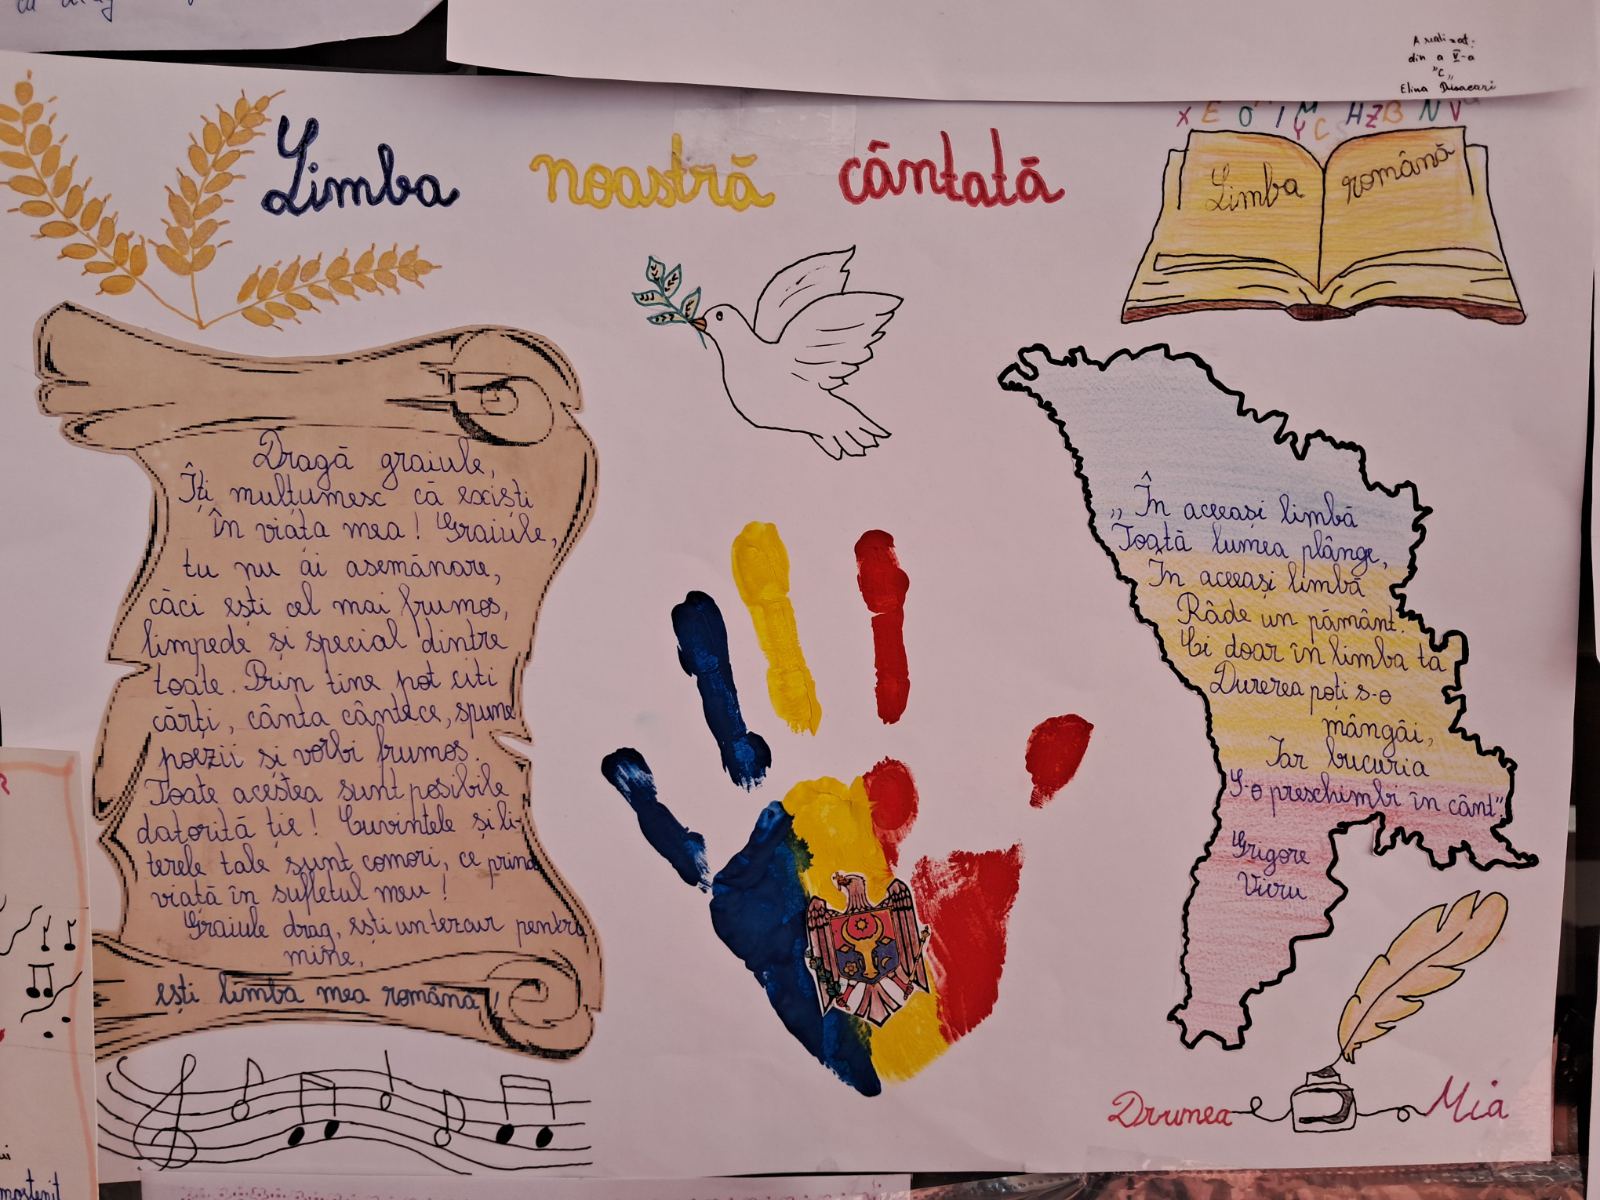 A realizat:
din a V-a
"C"
Elina
Limba noastră cântată
X E O I M Y C H Z B N V
Limba română
Dragă graiule,
Îți mulțumesc că exiști
în viața mea! Graiule,
tu nu ai asemănare,
căci ești cel mai frumos,
limpede și special dintre
toate. Prin tine pot citi
cărți, cânta cântece, spune
poezii și vorbi frumos.
Toate acestea sunt posibile
datorită ție! Cuvintele și li-
terele tale sunt comori, ce prind
viață în sufletul meu!
Graiule drag, ești un tezaur pentru
mine,
ești limba mea română!
„În aceeași limbă
Toată lumea plânge,
În aceeași limbă
Râde un pământ.
Ci doar în limba ta
Durerea poți s-o
mângâi,
Iar bucuria
S-o preschimbi în cânt”,
Grigore
Vieru
Drumea Mia
moștenit